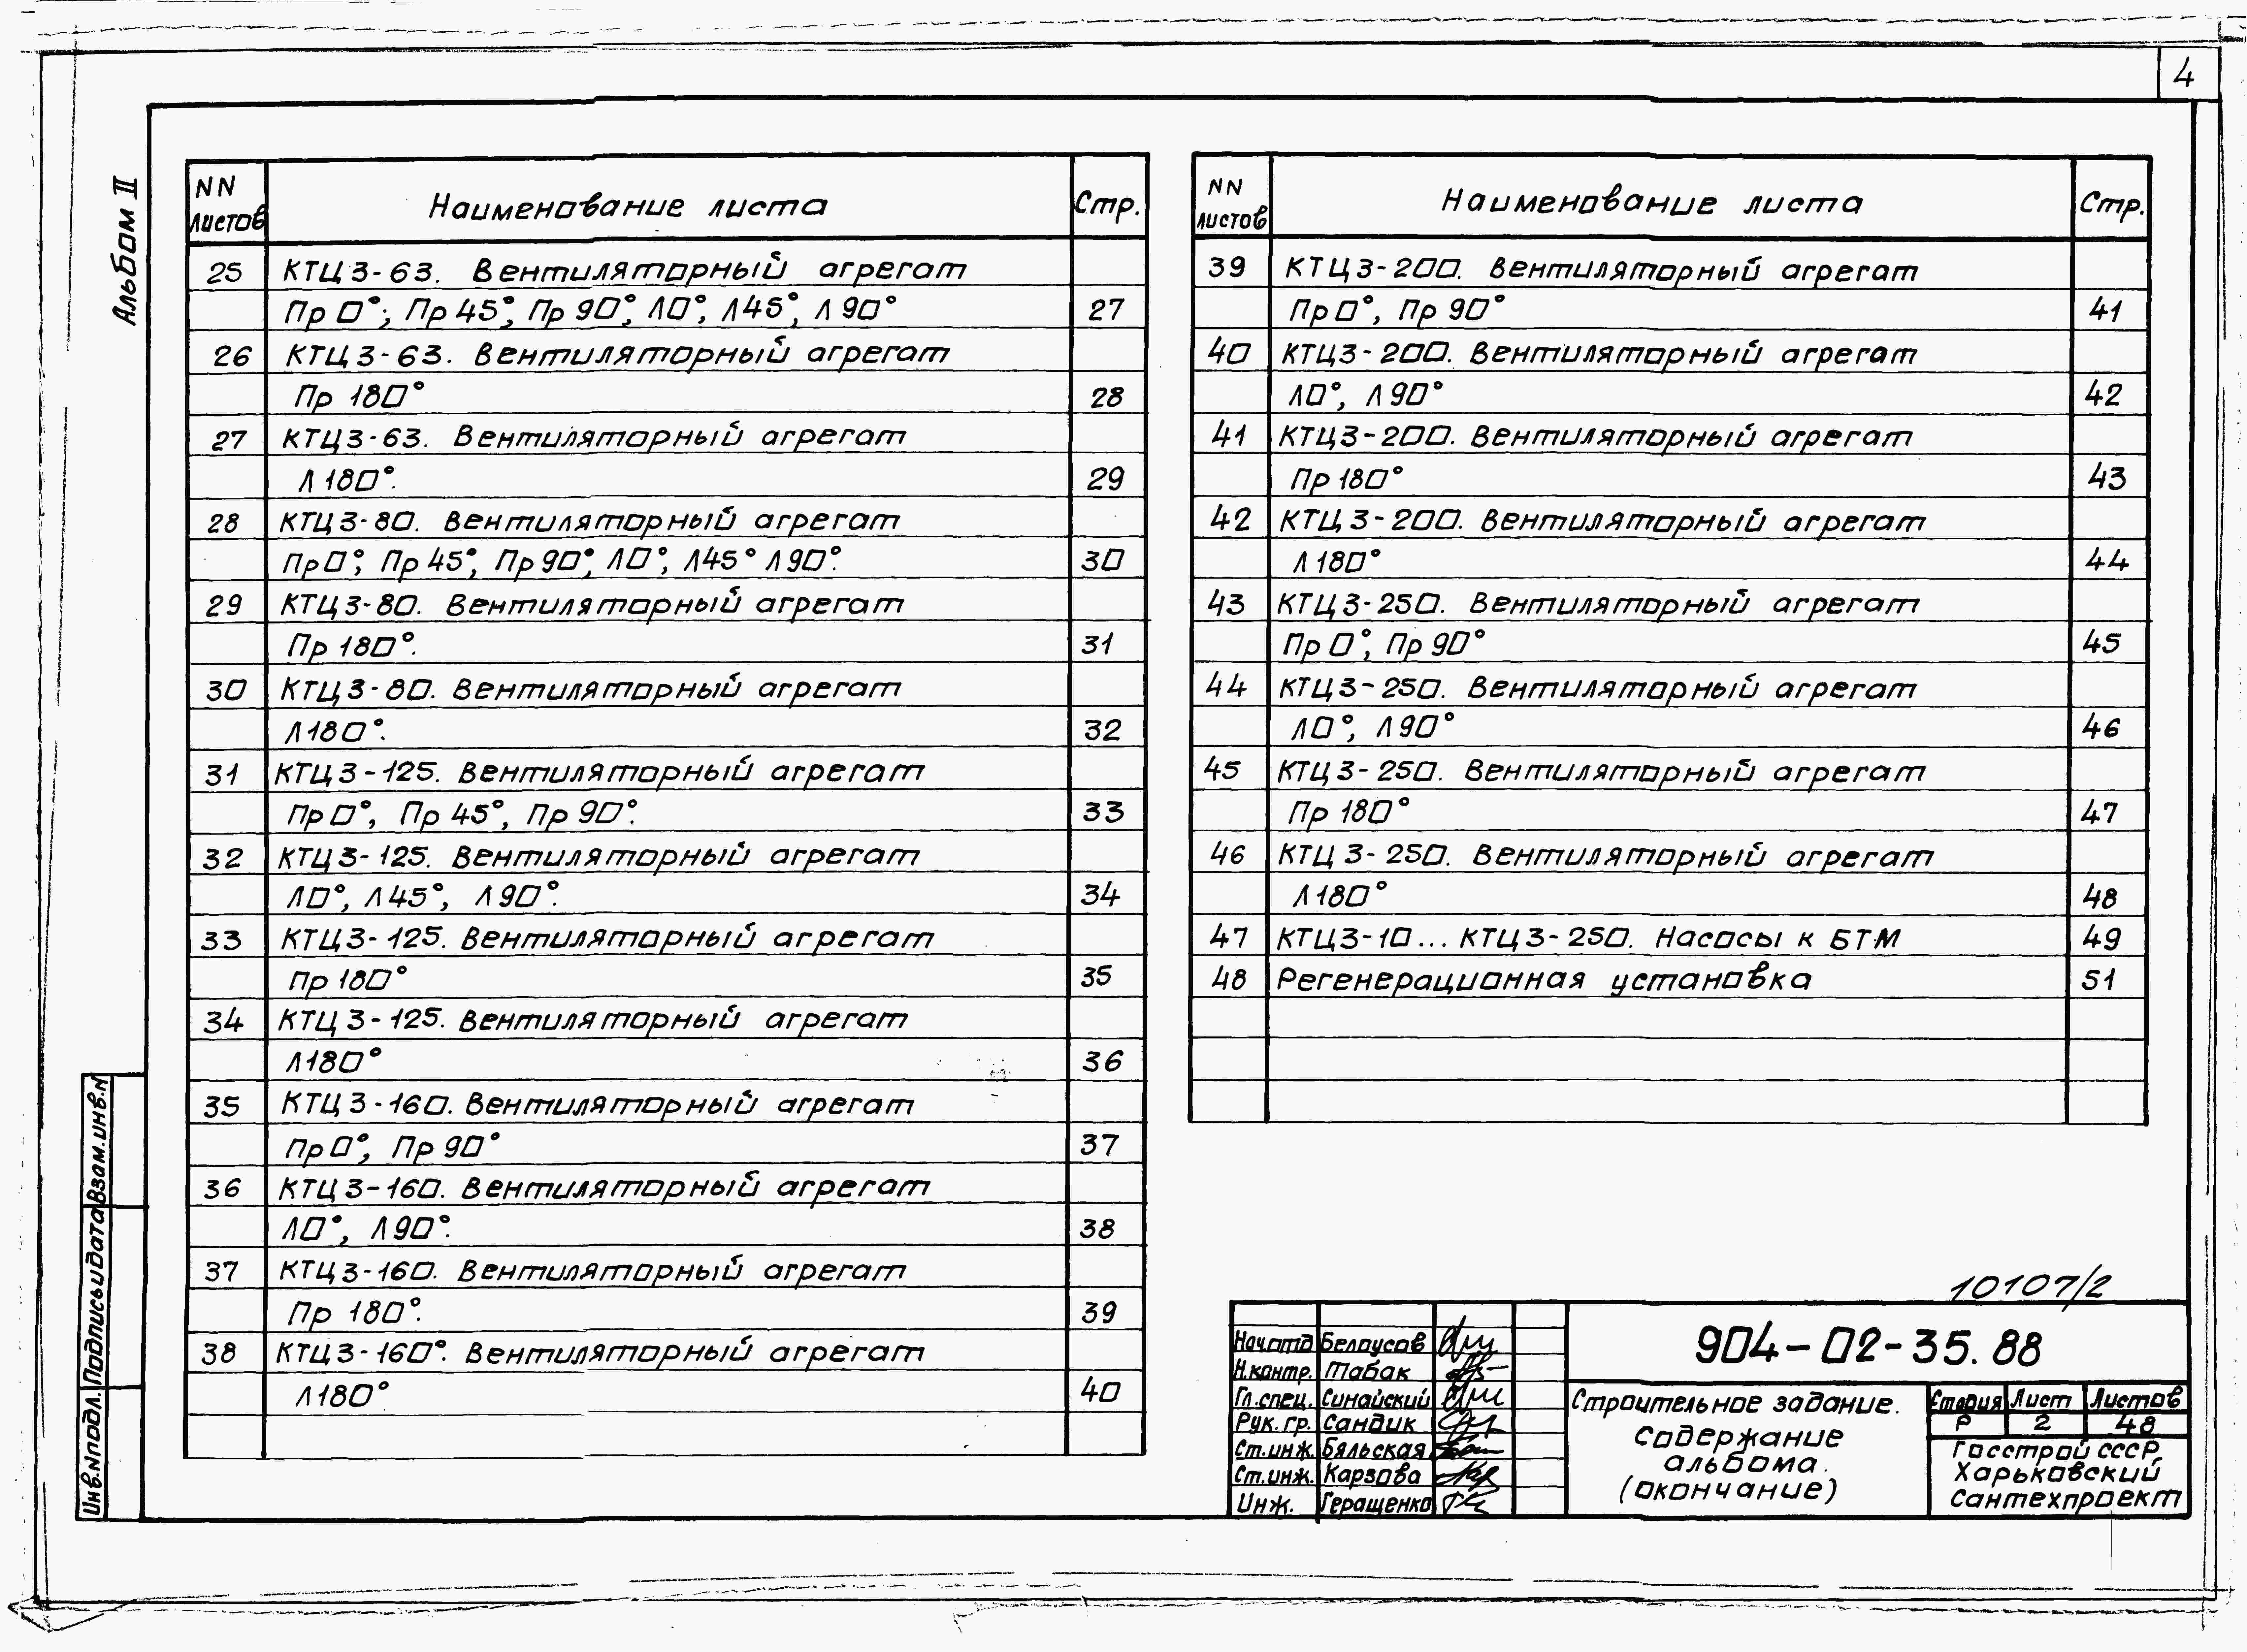 4
Альбом II
NN листов Наименование листа Стр.
25 КТЦ3-63. Вентиляторный агрегат
Пр 0°; Пр 45°, Пр 90°, Л0°, Л45°, Л90° 27
26 КТЦ3-63. Вентиляторный агрегат
Пр 180° 28
27 КТЦ3-63. Вентиляторный агрегат
Л 180°. 29
28 КТЦ3-80. Вентиляторный агрегат
Пр0°, Пр 45°, Пр 90°, Л0°, Л45° Л90°. 30
29 КТЦ3-80. Вентиляторный агрегат
Пр 180°. 31
30 КТЦ3-80. Вентиляторный агрегат
Л180°. 32
31 КТЦ3-125. Вентиляторный агрегат
Пр0°, Пр 45°, Пр 90°. 33
32 КТЦ3-125. Вентиляторный агрегат
Л0°, Л45°, Л90°. 34
33 КТЦ3-125. Вентиляторный агрегат
Пр 180° 35
34 КТЦ3-125. Вентиляторный агрегат
Л180° 36
35 КТЦ3-160. Вентиляторный агрегат
Пр0°, Пр 90° 37
36 КТЦ3-160. Вентиляторный агрегат
Л0°, Л90°. 38
37 КТЦ3-160. Вентиляторный агрегат
Пр 180°. 39
38 КТЦ3-160°. Вентиляторный агрегат
Л180° 40
NN листов Наименование листа Стр.
39 КТЦ3-200. Вентиляторный агрегат
Пр0°, Пр 90° 41
40 КТЦ3-200. Вентиляторный агрегат
Л0°, Л90° 42
41 КТЦ3-200. Вентиляторный агрегат
Пр 180° 43
42 КТЦ3-200. Вентиляторный агрегат
Л180° 44
43 КТЦ3-250. Вентиляторный агрегат
Пр 0°, Пр 90° 45
44 КТЦ3-250. Вентиляторный агрегат
Л0°, Л90° 46
45 КТЦ3-250. Вентиляторный агрегат
Пр 180° 47
46 КТЦ3-250. Вентиляторный агрегат
Л180° 48
47 КТЦ3-10... КТЦ3-250. Насосы к БТМ 49
48 Регенерационная установка 51
Инв.Nподл. Подпись и дата Взам.инв.N
10107/2
904-02-35.88
Нач.отд Белоусов
Н.контр. Табак
Гл.спец. Синайский
Рук. гр. Сандик
Ст.инж. Бяльская
Ст.инж. Карзова
Инж. Геращенко
Строительное задание.
Содержание
альбома.
(окончание)
Стадия Лист Листов
Р 2 48
Госстрой СССР
Харьковский
Сантехпроект